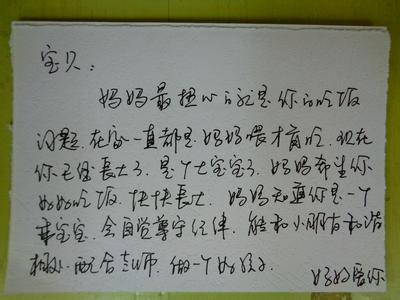 宝贝：
妈妈最担心的就是你的吃饭
问题，在家一直都是妈妈喂才肯吃，现在
你已经长大了，是个大宝宝了，妈妈希望你
好好吃饭，快快长大，妈妈知道你是一个
乖宝宝，会自觉遵守纪律，能和小朋友和谐
相处，配合老师，做一个好孩子。
妈妈爱你